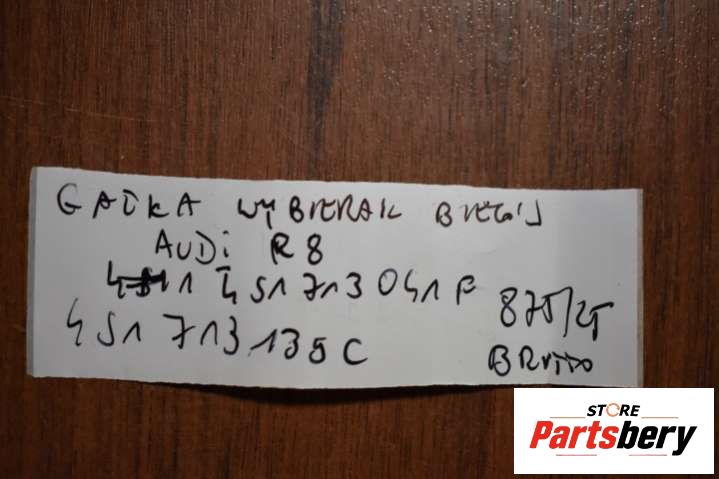 GAŁKA WYBIERAK BIEGÓW
AUDi R8
4S1 713 041 F 875/25
4S1 713 139 C
BRUTTO
STORE
Partsbery